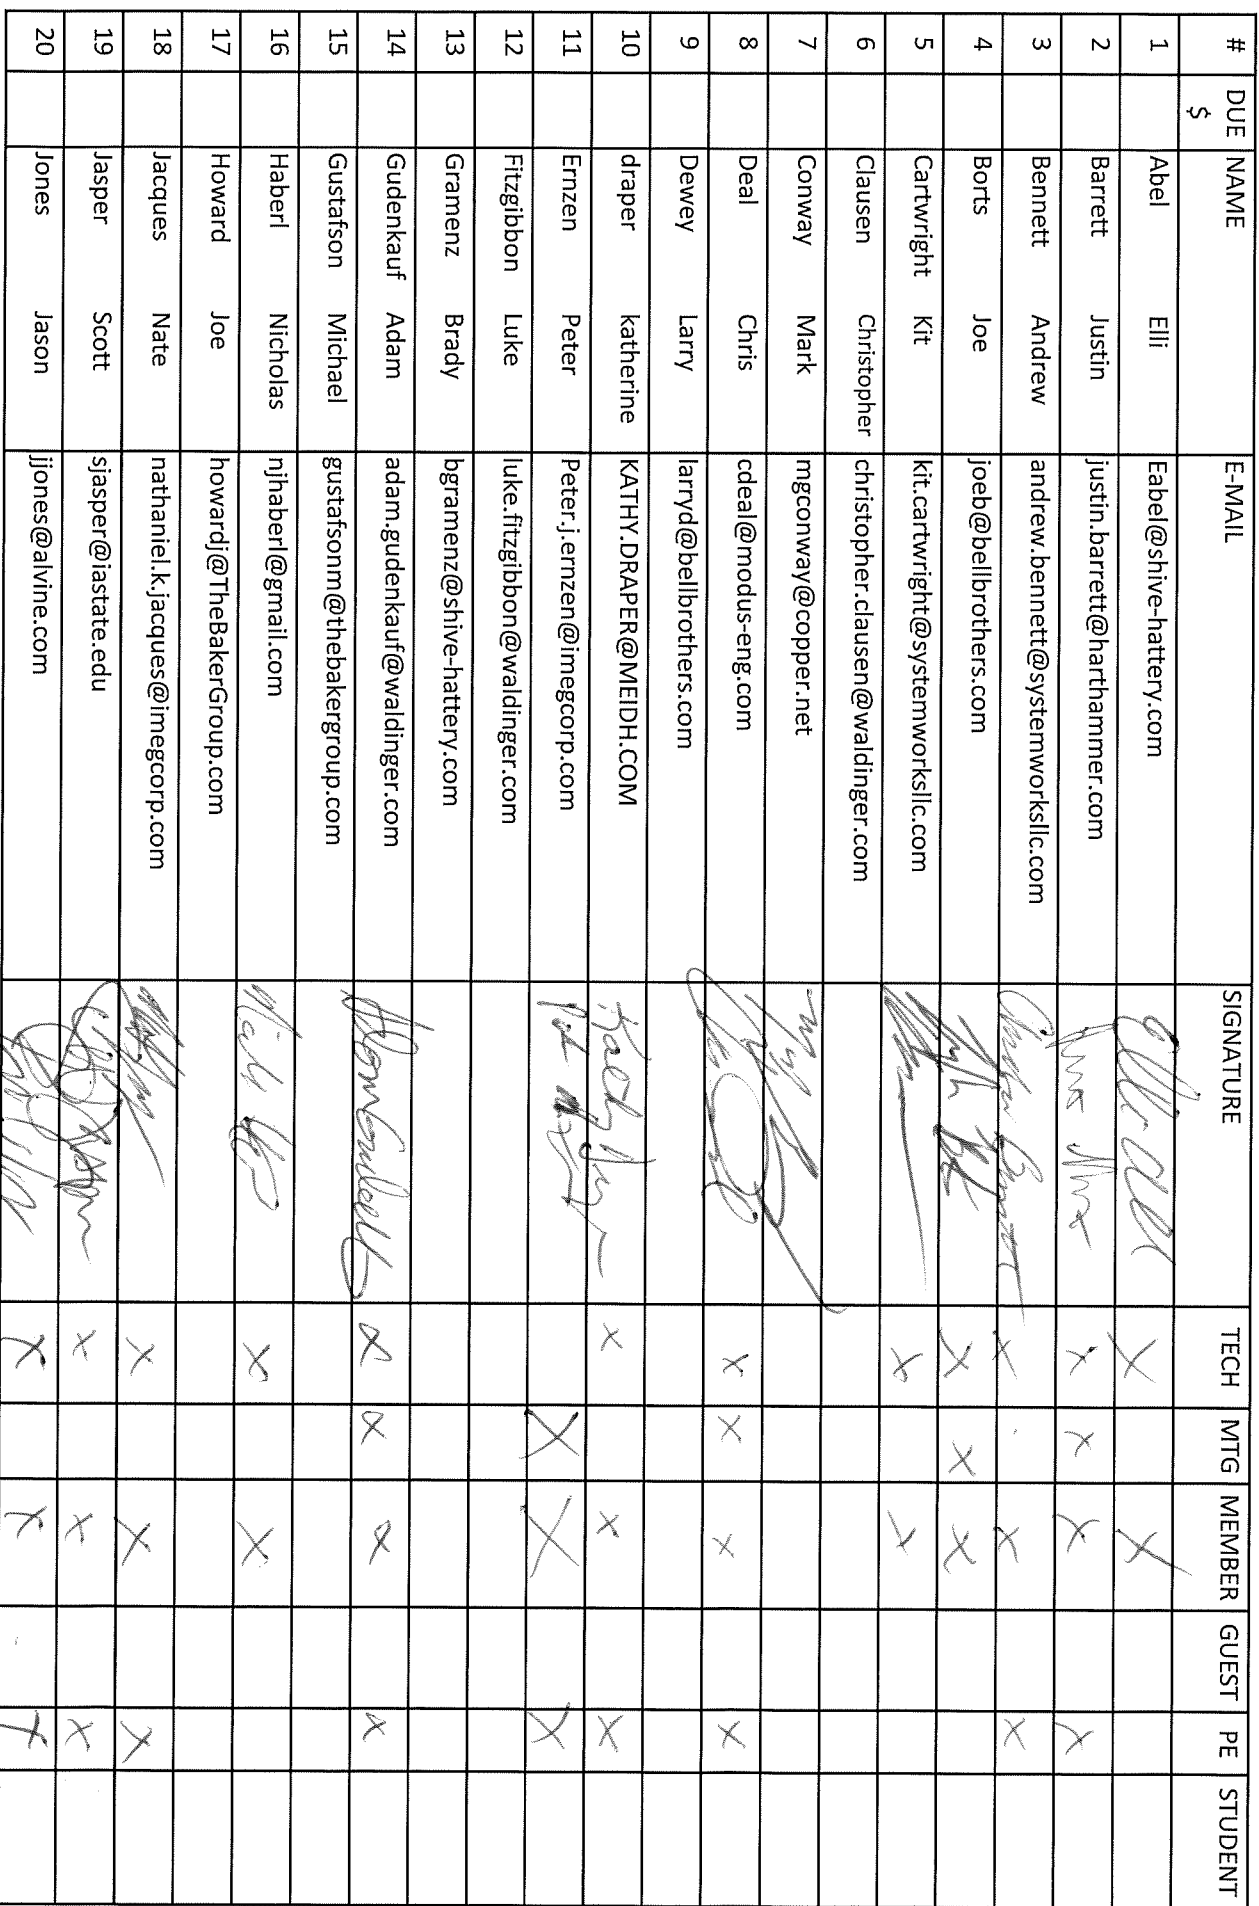 # DUE $ NAME E-MAIL SIGNATURE TECH MTG MEMBER GUEST PE STUDENT
1 Abel Elli Eabel@shive-hattery.com Elli Abel X X
2 Barrett Justin justin.barrett@harthammer.com X X X X
3 Bennett Andrew andrew.bennett@systemworksllc.com Andrew Bennett X X X
4 Borts Joe joeb@bellbrothers.com X X X
5 Cartwright Kit kit.cartwright@systemworksllc.com X X
6 Clausen Christopher christopher.clausen@waldinger.com
7 Conway Mark mgconway@copper.net
8 Deal Chris cdeal@modus-eng.com X X X X
9 Dewey Larry larryd@bellbrothers.com
10 draper katherine KATHY.DRAPER@MEIDH.COM X X X
11 Ernzen Peter Peter.j.ernzen@imegcorp.com X X X
12 Fitzgibbon Luke luke.fitzgibbon@waldinger.com
13 Gramenz Brady bgramenz@shive-hattery.com
14 Gudenkauf Adam adam.gudenkauf@waldinger.com X X X X
15 Gustafson Michael gustafsonm@thebakergroup.com
16 Haberl Nicholas njhaberl@gmail.com X X
17 Howard Joe howardj@TheBakerGroup.com
18 Jacques Nate nathaniel.k.jacques@imegcorp.com X X X
19 Jasper Scott sjasper@iastate.edu X X X
20 Jones Jason jjones@alvine.com X X X